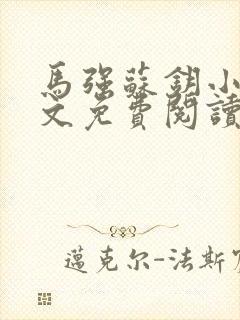 馬強蘇鈅小
文免費閱讀
邁克尔-法斯宾